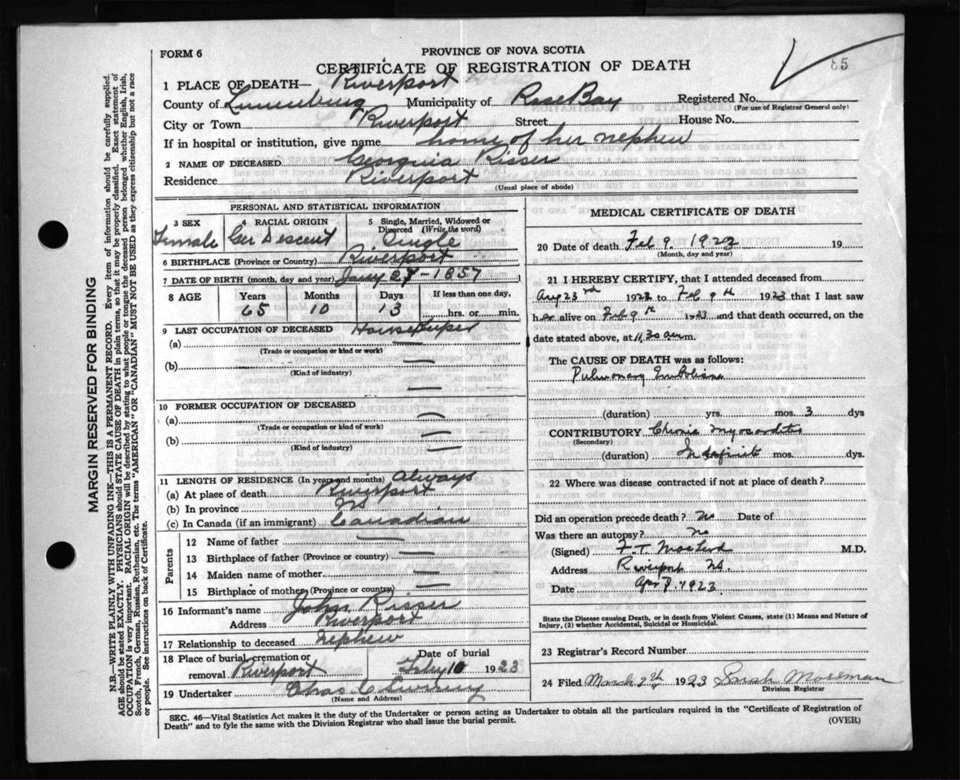 FORM 6
PROVINCE OF NOVA SCOTIA
CERTIFICATE OF REGISTRATION OF DEATH
85
1 PLACE OF DEATH— Riverport
County of Lunenburg Municipality of Rose Bay Registered No.
(For use of Registrar General only)
City or Town Riverport Street House No.
If in hospital or institution, give name home of her nephew
2 NAME OF DECEASED Georguia Risser
Residence Riverport
(Usual place of abode)
PERSONAL AND STATISTICAL INFORMATION
3 SEX Female
4 RACIAL ORIGIN Ger Descent
5 Single, Married, Widowed or Divorced (Write the word) Single
6 BIRTHPLACE (Province or Country) Riverport
7 DATE OF BIRTH (month, day and year) 27-1857
8 AGE Years 65 Months 10 Days 13 If less than one day, hrs. or min.
9 LAST OCCUPATION OF DECEASED Housekeeper
(a) —
(Trade or occupation or kind or work)
(b) —
(Kind of industry)
10 FORMER OCCUPATION OF DECEASED —
(a)
(Trade or occupation or kind of work)
(b) —
(Kind of industry) —
11 LENGTH OF RESIDENCE (In years and months) Always
(a) At place of death Riverport
(b) In province NS
(c) In Canada (if an immigrant) Canadian
Parents
12 Name of father —
13 Birthplace of father (Province or country) —
14 Maiden name of mother —
15 Birthplace of mother (Province or country) —
16 Informant's name John Risser
Address Riverport
17 Relationship to deceased nephew
18 Place of burial, cremation or removal Riverport Date of burial Feby 10 1923
19 Undertaker Chas
(Name and Address)
MEDICAL CERTIFICATE OF DEATH
20 Date of death Feb 9. 1923 19
(Month, day and year)
21 I HEREBY CERTIFY, that I attended deceased from
Aug 23rd 1922 to Feb 9th 1923 that I last saw
her alive on Feb 9th 1923 and that death occurred, on
date stated above, at 11,30 a.m.
The CAUSE OF DEATH was as follows:
Pulmonary Embolism
(duration) yrs. mos. 3 dys
CONTRIBUTORY Chronic Myocarditis
(Secondary)
(duration) mos. dys
22 Where was disease contracted if not at place of death?
Did an operation precede death? No Date of
Was there an autopsy? No
(Signed) F. T. M.D.
Address Riverport NS.
Date 1923
State the Disease causing Death, or in death from Violent Causes, state (1) Means and Nature of
Injury, (2) whether Accidental, Suicidal or Homicidal.
23 Registrar's Record Number
24 Filed March 1923 Sarah Moseman
Division Registrar
SEC. 46—Vital Statistics Act makes it the duty of the Undertaker or person acting as Undertaker to obtain all the particulars required in the "Certificate of Registration of
Death" and to fyle the same with the Division Registrar who shall issue the burial permit.
(OVER)
MARGIN RESERVED FOR BINDING
N.B.—WRITE PLAINLY WITH UNFADING INK—THIS IS A PERMANENT RECORD. Every item of information should be carefully supplied.
AGE should be stated EXACTLY. PHYSICIANS should STATE CAUSE OF DEATH in plain terms, so that it may be properly classified. Exact statement of
OCCUPATION is very important. RACIAL ORIGIN will be described by stating to what people or tongue the deceased person belonged whether English, Irish,
Scotch, French, German, Russian, Ruthenian, etc. The terms "AMERICAN" OR "CANADIAN" MUST NOT BE USED as they express citizenship but not a race
or people. See instructions on back of Certificate.